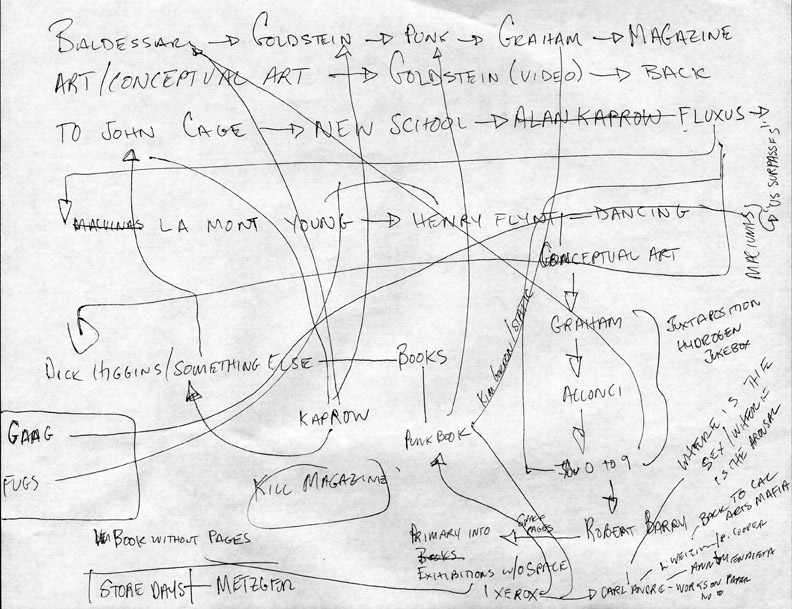 BALDESSARI → GOLDSTEIN → PUNK → GRAHAM → MAGAZINE
ART/CONCEPTUAL ART → GOLDSTEIN (VIDEO) → BACK
TO JOHN CAGE → NEW SCHOOL → ALAN KAPROW FLUXUS →
MACIUNAS)
"US SURPASSES"
MACIUNAS LA MONT YOUNG → HENRY FLYNT = DANCING
CONCEPTUAL ART
KIM GORDON/STATIC
GRAHAM
JUXTAPOSITION
HYDROGEN
JUKEBOX
DICK HIGGINS/SOMETHING ELSE — BOOKS
ACCONCI
KAPROW
GAAG
PUNK BOOK
0 TO 9
WHERE IS THE
SEX/WHERE
IS THE AROUSAL
FUGS
KILL MAGAZINE
BOOK WITHOUT PAGES
PRIMARY INTO
BOOKS
PAGES
ROBERT BARRY
BACK TO CAL
ARTS MAFIA
EXHIBITIONS W/O SPACE
L WEINER/P. COOPER
STORE DAYS — METZGER
XEROX → CARL ANDRE - WORKS ON PAPER
ANA MENDIETA